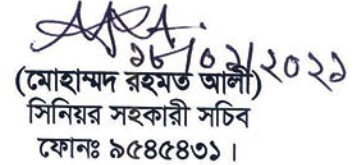 ১৮/০১/২০২১
(মোহাম্মদ রহমত আলী)
সিনিয়র সহকারী সচিব
ফোনঃ ৯৫৪৫৪৩১।